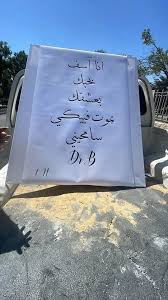 انا آسف
بحبك
بعشقك
بموت فيكي
سامحيني
Dr.B